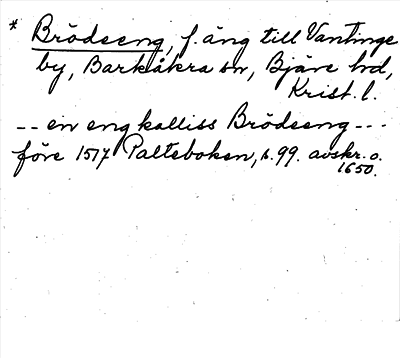 * Brödeeng, f. äng till Vantinge
by, Barkåkra sn, Bjäre hd,
Krist. l.
-- en eng kalliss Brödeeng ---
före 1517 Palteboken, s. 99. avskr. o.
1650.